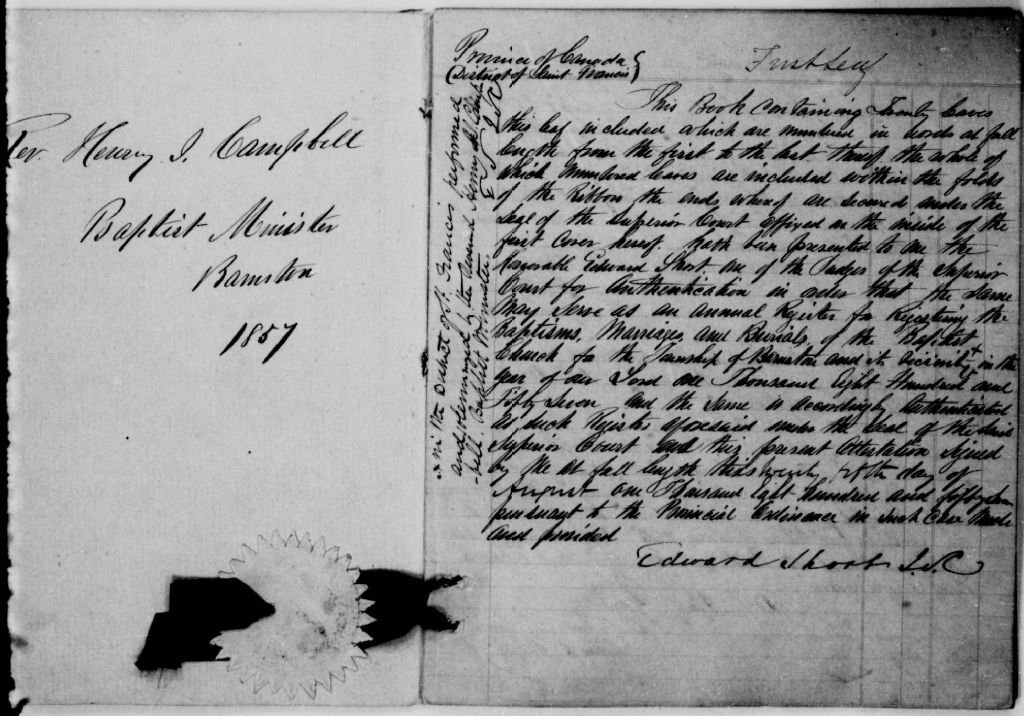 Rev. Henry I. Campbell
Baptist Minister
Barnston
1857
Province of Canada
District of Saint Francis
First Leaf
This Book Containing Twenty leaves
this leaf included which are numbered in words at full
length from the first to the last thereof the whole of
which numbered leaves are included within the folds
of the Ribbon the ends whereof are secured under the
Seal of the Superior Court affixed on the inside of the
first Cover hereof. Hath been presented to me the
Honorable Edward Short one of the Judges of the Superior
Court for Authentication in order that the same
may serve as an annual Register for Registering the
Baptisms, Marriages, and Burials, of the Baptist
Church for the Township of Barnston and its vicinity + in the
year of our Lord one Thousand Eight Hundred and
Fifty Seven and the same is accordingly Authenticated
as such Register aforesaid under the Seal of the said
Superior Court and this present Attestation signed
by me at full length this day of
August one Thousand Eight Hundred and fifty
pursuant to the Provincial Ordinance in such case made
and provided
Edward Short J.S.C
+ in the District of St. Francis performed
and solemnized by the Reverend Henry I. Camp
-bell Baptist Minister. E. S. J.S.C